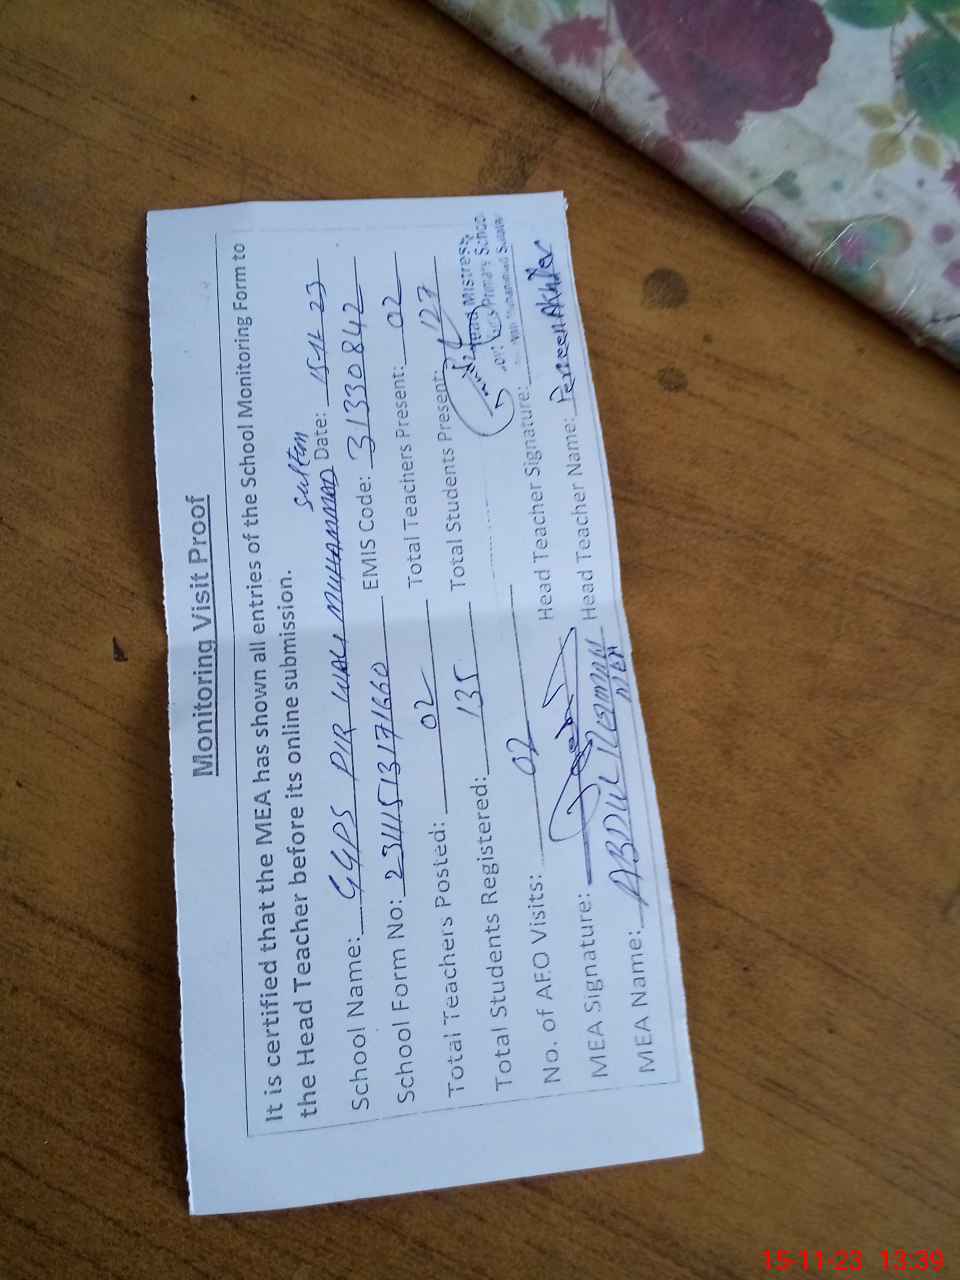 Monitoring Visit Proof
It is certified that the MEA has shown all entries of the School Monitoring Form to
the Head Teacher before its online submission.
sultan
School Name: GGPS PIR WALI MUHAMMAD Date: 15-11-23
School Form No: 23111513171660 EMIS Code: 31330842
Total Teachers Posted: 02 Total Teachers Present: 02
Total Students Registered: 135 Total Students Present: 127
No. of AEO Visits: 02
Head Mistress
Primary School
Muhammad
MEA Signature: Head Teacher Signature:
MEA Name: ABDUL REHMAN Head Teacher Name: Perzeen Akhter
MEA
15-11-23 13:39